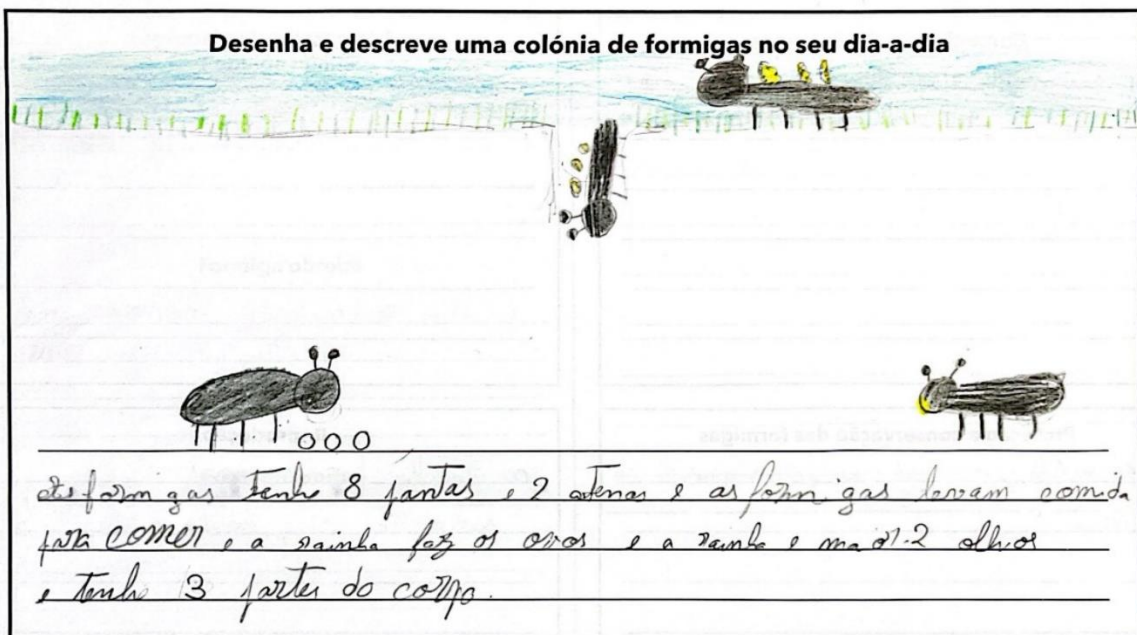 Desenha e descreve uma colónia de formigas no seu dia-a-dia
As formgas tenhe 8 pantas e 2 atenas e as formigas levam comida
para comer e a rainha faz os ovos e a rainha e maor 2 olhos
e tenhe 3 partes do corpo.